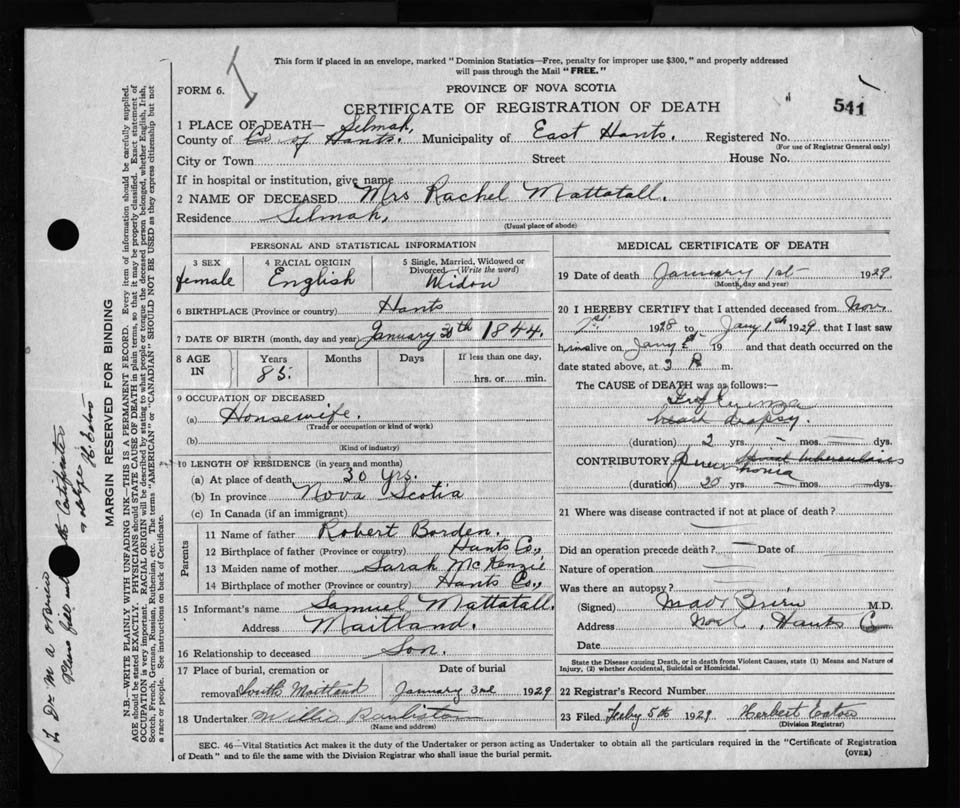 This form if placed in an envelope, marked "Dominion Statistics—Free, penalty for improper use $300," and properly addressed
will pass through the Mail "FREE."
FORM 6.
PROVINCE OF NOVA SCOTIA
CERTIFICATE OF REGISTRATION OF DEATH
541
1 PLACE OF DEATH— Selmah,
County of Co of Hants. Municipality of East Hants. Registered No.
(For use of Registrar General only)
City or Town Street House No.
If in hospital or institution, give name
2 NAME OF DECEASED Mrs Rachel Mattatall.
Residence Selmah,
(Usual place of abode)
PERSONAL AND STATISTICAL INFORMATION
3 SEX 4 RACIAL ORIGIN 5 Single, Married, Widowed or
Divorced—(Write the word)
female English Widow
6 BIRTHPLACE (Province or country) Hants
7 DATE OF BIRTH (month, day and year) January 30th 1844.
8 AGE IN Years Months Days If less than one day,
85. hrs. or min.
9 OCCUPATION OF DECEASED
(a) Housewife.
(Trade or occupation or kind of work)
(b)
(Kind of industry)
10 LENGTH OF RESIDENCE (in years and months)
(a) At place of death 30 Yrs.
(b) In province Nova Scotia
(c) In Canada (if an immigrant)
Parents
11 Name of father Robert Borden.
12 Birthplace of father (Province or country) Hants Co.,
13 Maiden name of mother Sarah McKenzie
14 Birthplace of mother (Province or country) Hants Co.,
15 Informant's name Samuel Mattatall.
Address Maitland.
16 Relationship to deceased Son.
17 Place of burial, cremation or Date of burial
removal South Maitland January 3rd 1929
18 Undertaker Willis
(Name and address)
MEDICAL CERTIFICATE OF DEATH
19 Date of death January 1st 1929
(Month, day and year)
20 I HEREBY CERTIFY that I attended deceased from Nov.
1928 to Jany 1st 1929 that I last saw
h alive on Jany 19 and that death occurred on the
date stated above, at 3 P m.
The CAUSE of DEATH was as follows:—
Influenza
heart dropsy.
(duration) 2 yrs. – mos. – dys.
CONTRIBUTORY Pneumonia tuberculosis
(duration) 20 yrs. – mos. – dys.
21 Where was disease contracted if not at place of death?
Did an operation precede death? Date of
Nature of operation
Was there an autopsy?
(Signed) M.D.
Address Hants Co
Date
State the Disease causing Death, or in death from Violent Causes, state (1) Means and Nature of
Injury, (2) whether Accidental, Suicidal or Homicidal.
22 Registrar's Record Number
23 Filed Feby 5th 1929 Herbert Eaton
(Division Registrar)
SEC. 46—Vital Statistics Act makes it the duty of the Undertaker or person acting as Undertaker to obtain all the particulars required in the "Certificate of Registration
of Death" and to file the same with the Division Registrar who shall issue the burial permit.
(OVER)
MARGIN RESERVED FOR BINDING
N.B.—WRITE PLAINLY WITH UNFADING INK—THIS IS A PERMANENT RECORD. Every item of information should be carefully supplied.
AGE should be stated EXACTLY. PHYSICIANS should STATE CAUSE OF DEATH in plain terms, so that it may be properly classified. Exact statement of
OCCUPATION is very important. RACIAL ORIGIN will be described by stating to what people or tongue the deceased person belonged, whether English, Irish,
Scotch, French, German, Russian, Ruthenian, etc. The terms "AMERICAN" or "CANADIAN" SHOULD NOT BE USED as they express citizenship but not
a race or people. See instructions on back of Certificate.
Dr M A O'Brien
Please fill Certificates
& oblige H Eaton